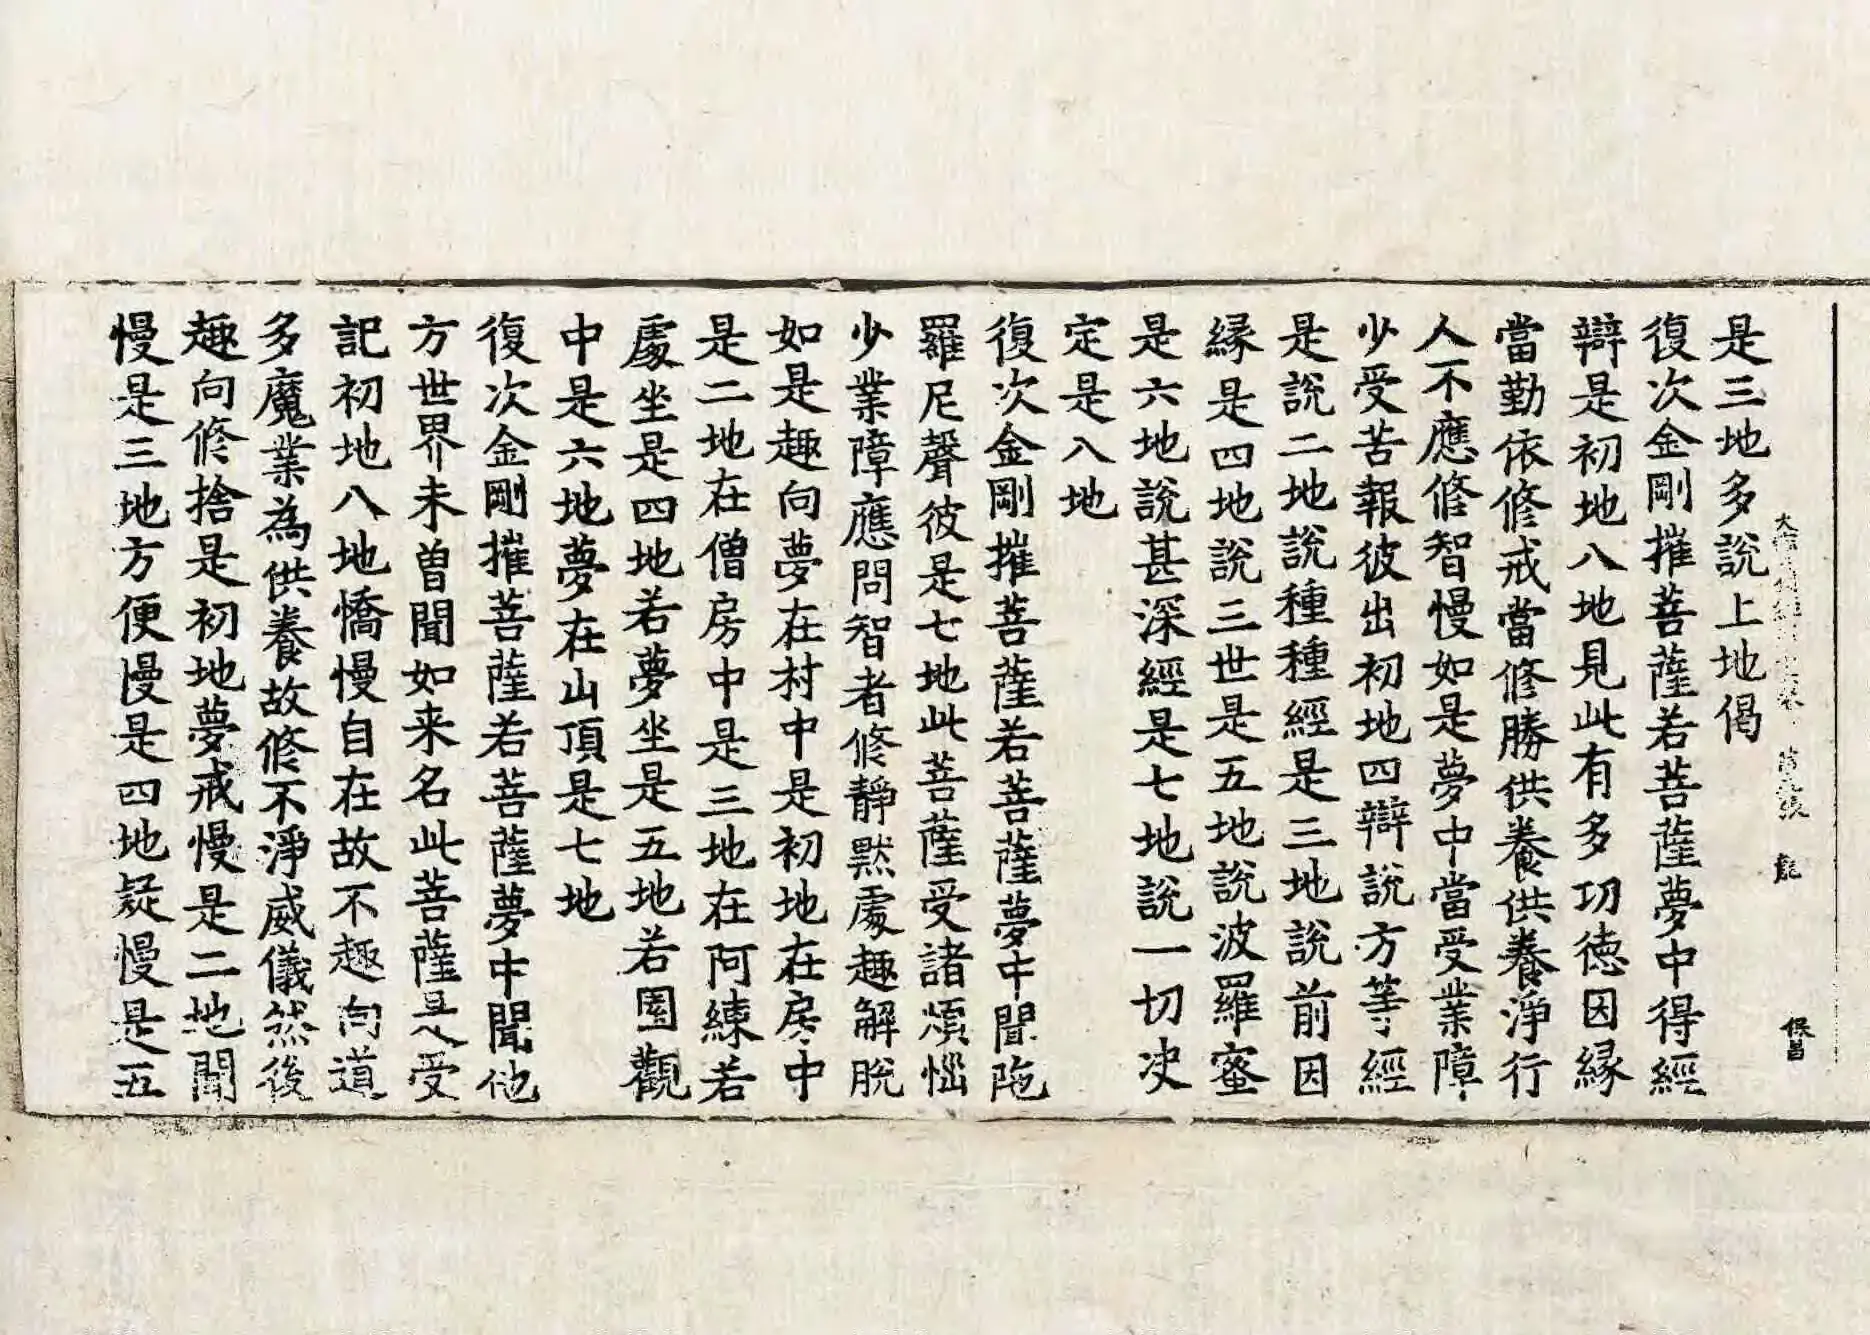 是三地多說上地偈
復次金剛摧菩薩若菩薩夢中得經
辯是初地八地見此有多功德因緣
當勤依修戒當修勝供養供養淨行
人不應修智慢如是夢中當受業障
少受苦報彼出初地四辯說方等經
是說二地說種種經是三地說前因
緣是四地說三世是五地說波羅蜜
是六地說甚深經是七地說一切决
定是八地
復次金剛摧菩薩若菩薩夢中聞陁
羅尼聲彼是七地此菩薩受諸煩惱
少業障應問智者修靜默處趣解脫
如是趣向夢在村中是初地在房中
是二地在僧房中是三地在阿練若
處坐是四地若夢坐是五地若園觀
中是六地夢在山頂是七地
復次金剛摧菩薩若菩薩夢中聞他
方世界未曾聞如来名此菩薩是受
記初地八地憍慢自在故不趣向道
多魔業為供養故修不淨威儀然後
趣向修捨是初地夢戒慢是二地聞
慢是三地方便慢是四地疑慢是五
保昌